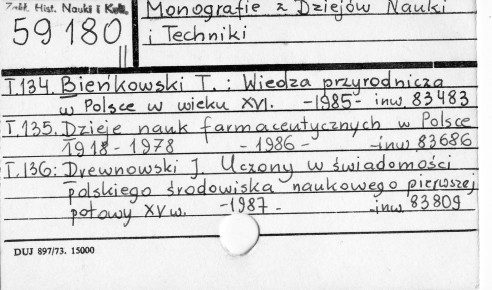 Zakł. Hist. Nauki i Kult.
59180
II
Monografie z Dziejów Nauki
i Techniki
T.134. Bieńkowski T.: Wiedza przyrodnicza
w Polsce w wieku XVI. -1985- inw. 83483
T.135. Dzieje nauk farmaceutycznych w Polsce
1918-1978 -1986- -inw. 83686
T.136: Drewnowski J. Uczony w świadomości
polskiego środowiska naukowego pierwszej
połowy XV w. -1987- -inw. 83809
DUJ 897/73. 15000